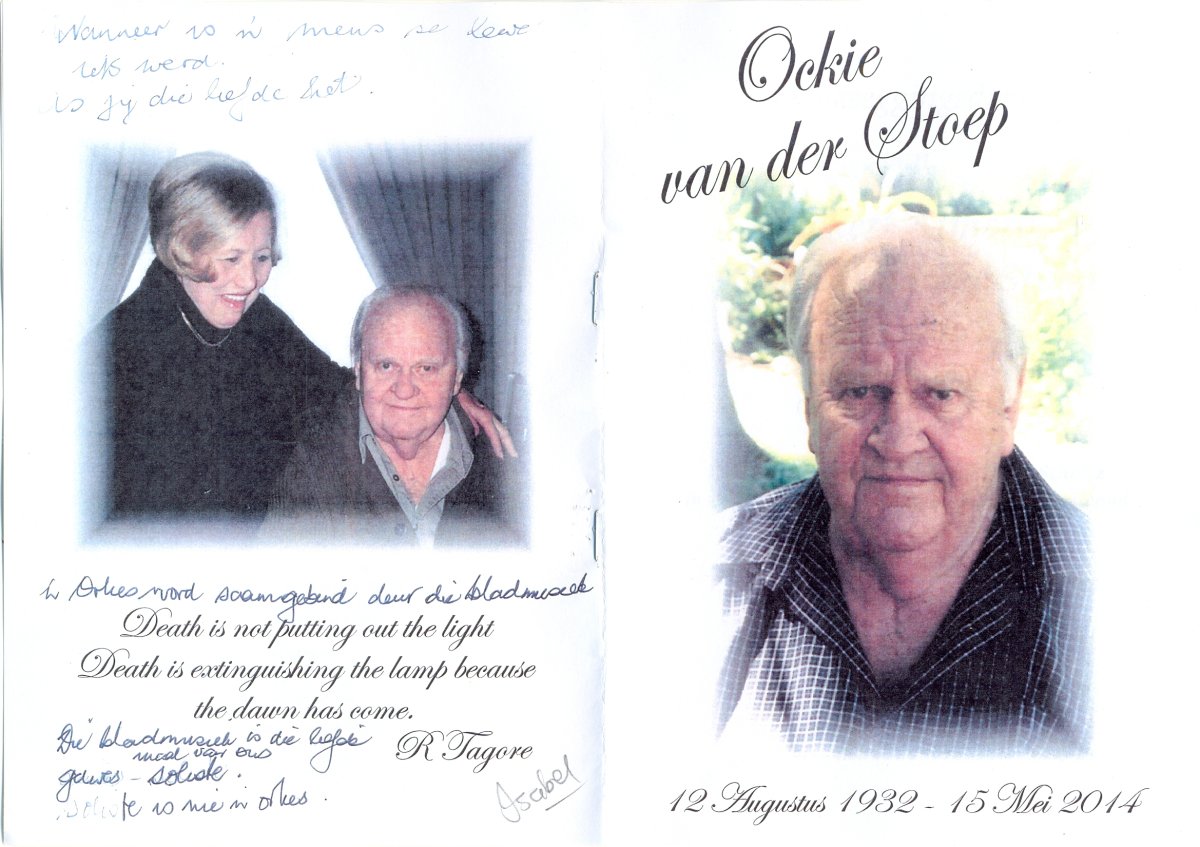 Wanneer is 'n mens se lewe
iets werd.
As jy die liefde het.
'n Orkes word saamgebind deur die bladmusiek
Death is not putting out the light
Death is extinguishing the lamp because
the dawn has come.
R Tagore
Die bladmusiek is die liefde
maal var ons
gawes - soliste.
Soliste is nie 'n orkes.
Isabel
Ockie
van der Stoep
12 Augustus 1932 - 15 Mei 2014